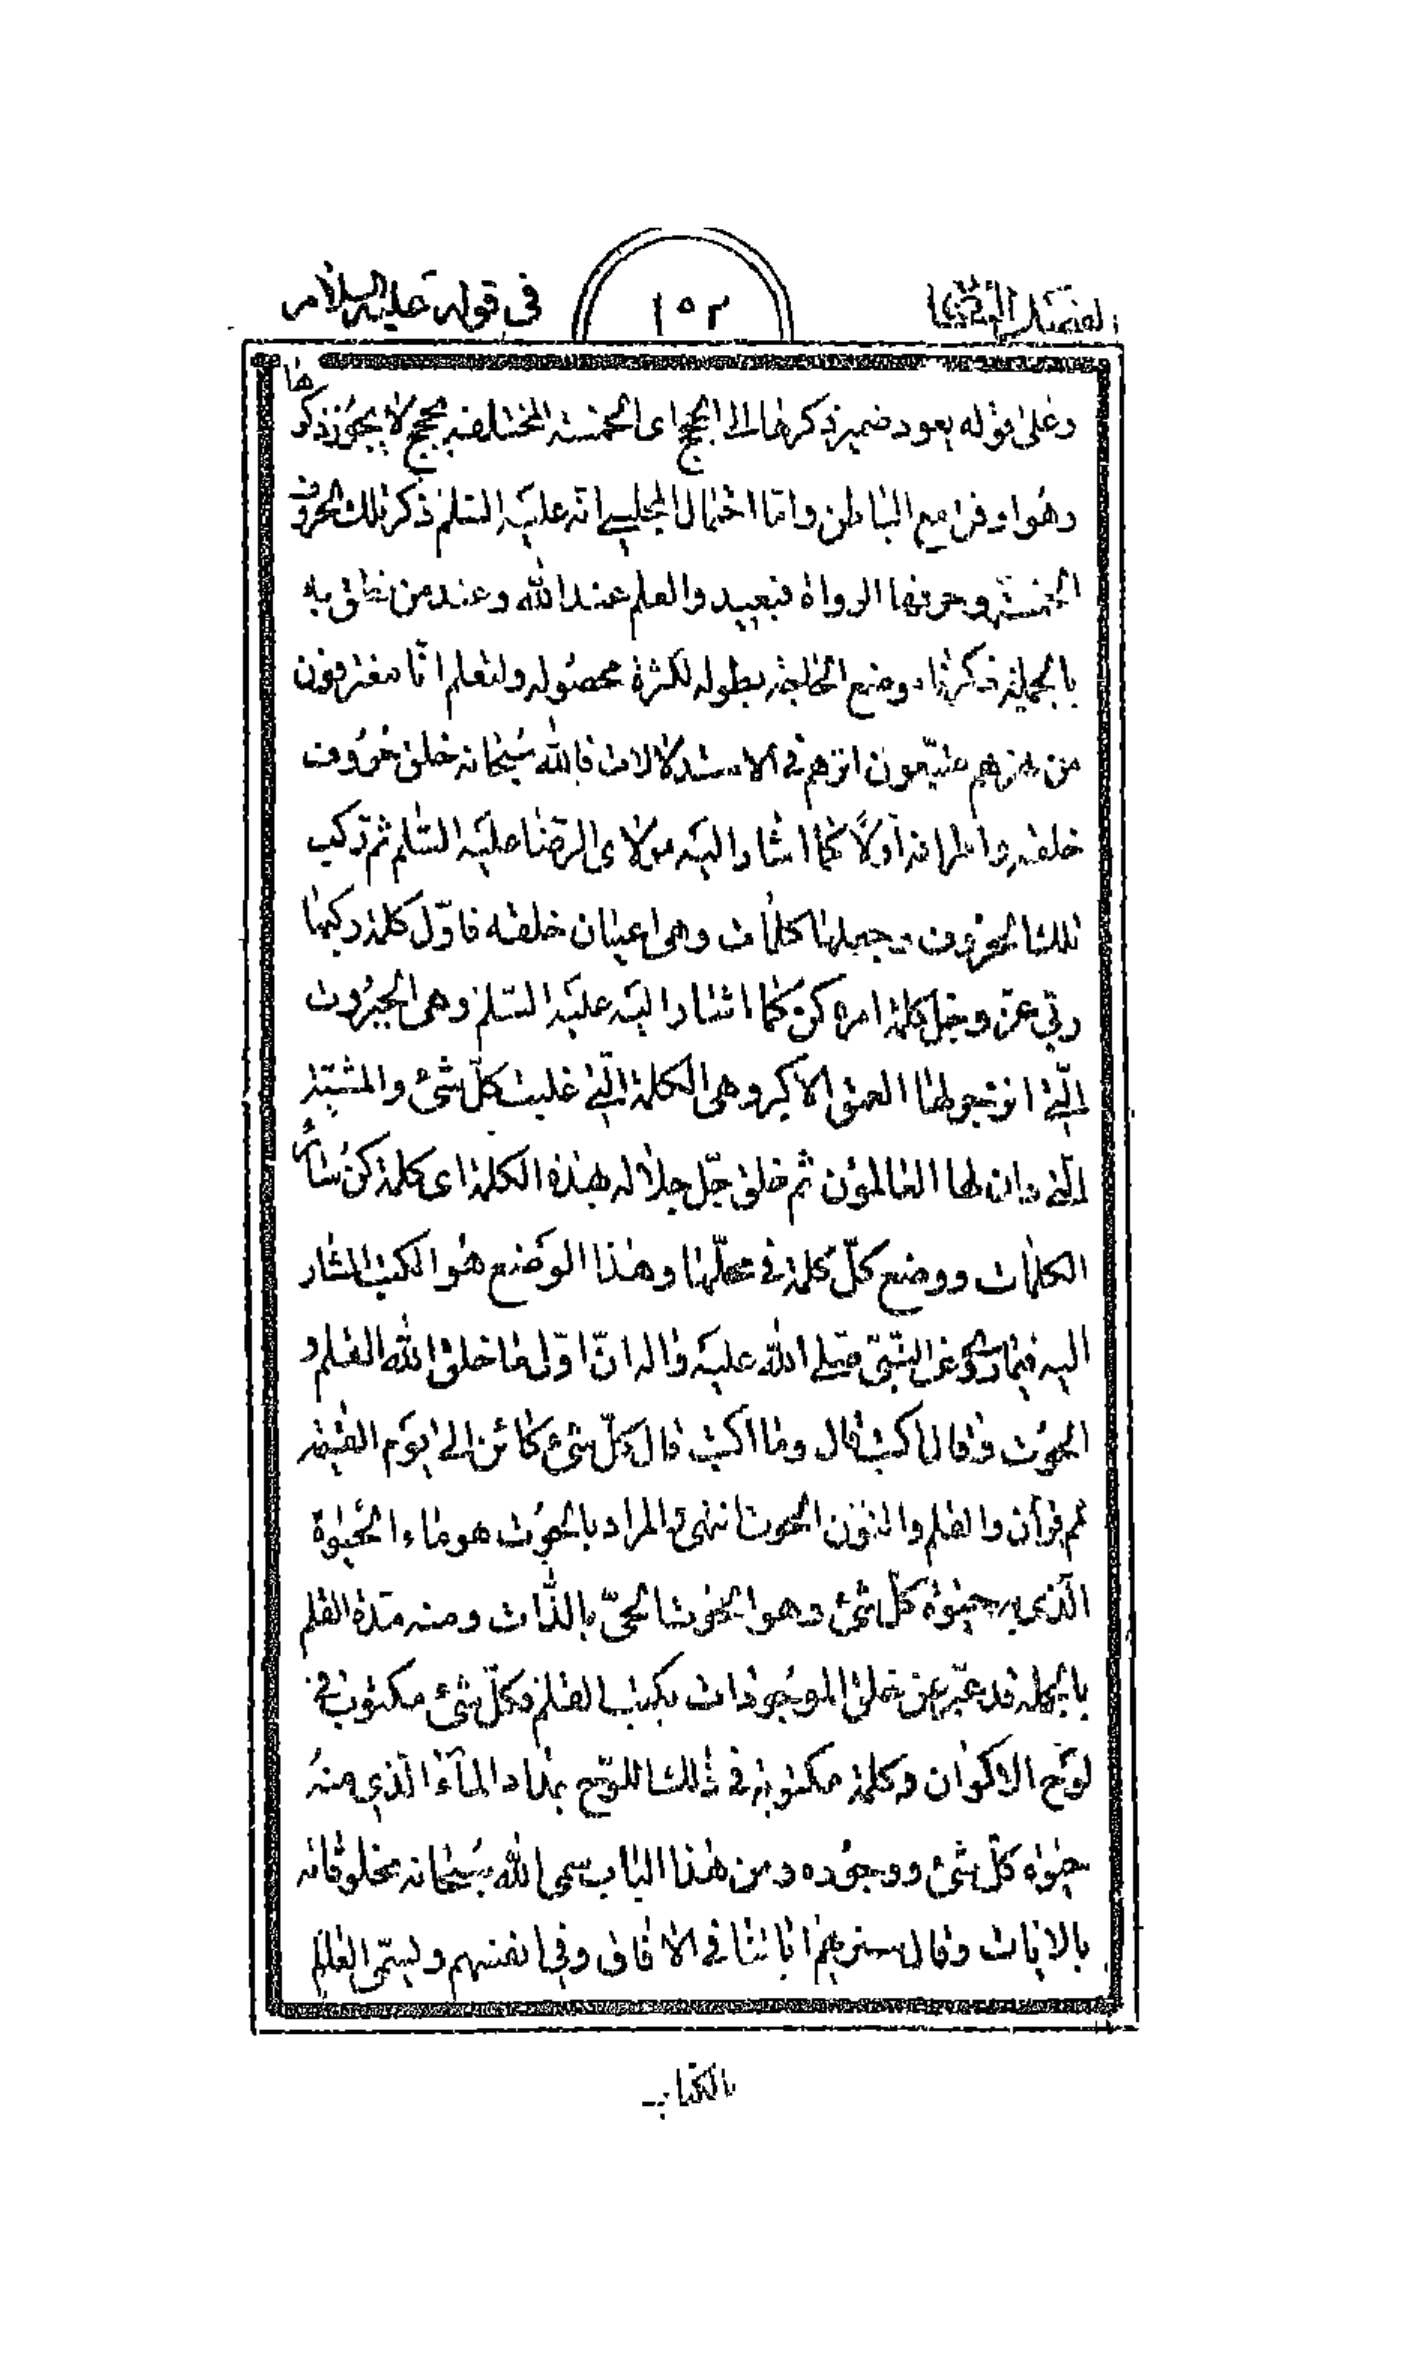 في قوله عليه السلام
١٥٢
وعلى قوله يعود ضمير ذكرها الى الحجج اى الخمسة المختلفة بحجج لا يجوز ذكرها
وهو اوفق مع الباطن واما احتمال المجلسي انه عليه السلم ذكر تلك الحروف
الخمسة وحرفها الرواة فبعيد والعلم عند الله وعند من نطق به
بالجملة ذكرنا وضع الخلجة بطوله لكثرة محصوله ولتعلم انا مغترفون
من بحرهم متبعون اثرهم في الاستدلالات فالله سبحانه خلق حروف
خلقه واطرافه اولاً كما اشار اليه مولاى الرضا عليه السلم ثم ركب
تلك الحروف وجعلها كلمات وهى اعيان خلقه فاول كلمة ركبها
ربي عز وجل كلمة امره كن كما اشار اليه عليه السلم وهى الجبروت
الّتي انزجر لها العمق الاكبر وهى الكلمة الّتي غلبت كلّ شئ والمشية
الّتي دان لها العالمون ثم خلق جلّ جلاله بهذه الكلمة اى كلمة كن سائر
الكلمات ووضع كلّ كلمة في محلّها وهذا الوضع هو الكتب المشار
اليه فيما روى عن النبىّ صلى الله عليه واله انّ اوّل ما خلق الله القلم و
الحوت وقال اكتب قال وما اكتب قال كلّ شئ كائن الى يوم القيمة
ثم قرأن والقلم والنون الحوت انتهى والمراد بالحوت هو ماء الحيوة
الّذي به حيوة كلّ شئ وهو الحوت الحىّ بالذّات ومنه مدة القلم
بالجملة قد عبّر عن خلق الموجودات بكتب القلم فكلّ شئ مكتوب في
لوح الاكوان وكلمة مكتوبة في ذلك اللوح بمداد المآء الّذي منه
حيوة كلّ شئ ووجوده ومن هذا الباب سمى الله سبحانه مخلوقاته
بالايات وقال سنريهم اياتنا في الافاق وفي انفسهم وليسمّى العالم
بالكتاب